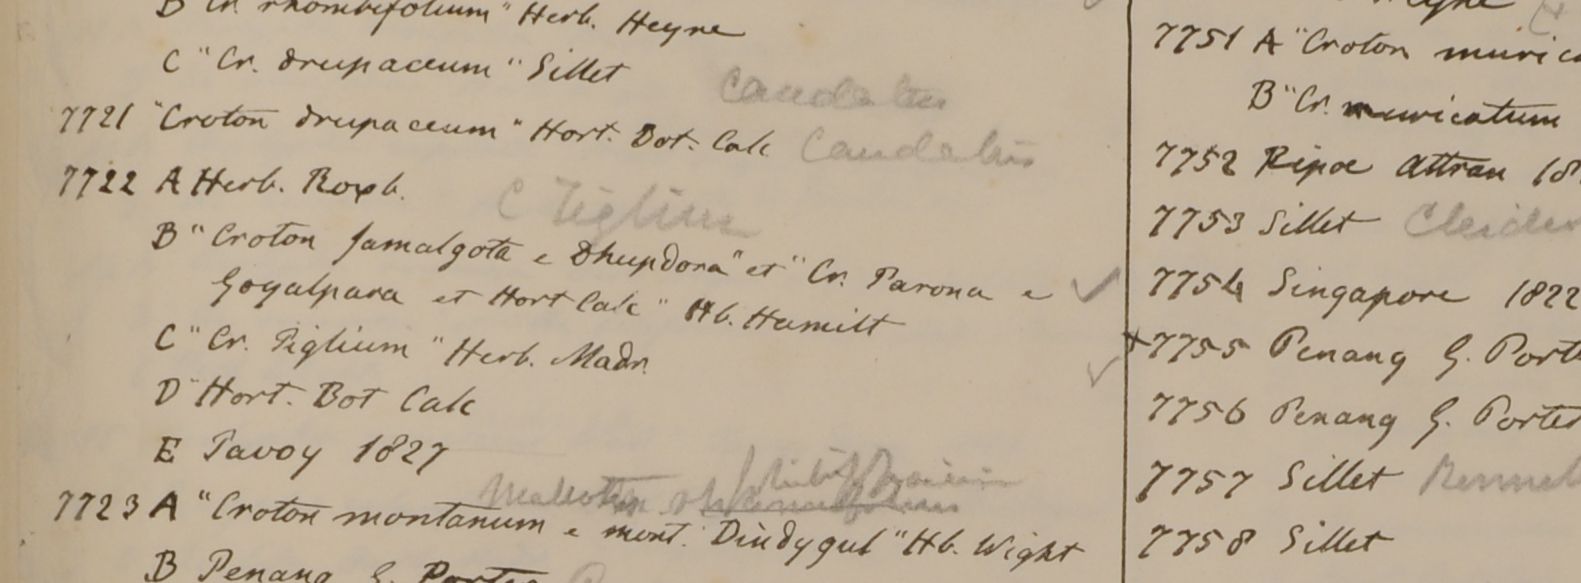 B "Cr. rhombifolium" Herb. Heyne
C "Cr. drupaceum" Sillet
caudatus
7721 "Croton drupaceum" Hort. Bot. Calc Caudatus
7722 A Herb. Roxb.
C Tiglium
B "Croton Jamalgota e Dhupdora" et "Cr. Parona e
Goyalpara et Hort Calc" Hb. Hamilt
C "Cr. Tiglium" Herb. Madr.
D Hort. Bot Calc
E Tavoy 1827
Mallotus
7723 A "Croton montanum e mont. Dindygul" Hb. Wight
B Penang G. Porter
7751 A "Croton muric
B "Cr. muricatum
7752 Ripae Attran 18
7753 Sillet
7754 Singapore 1822
+7755 Penang G. Porte
7756 Penang G. Porter
7757 Sillet
7758 Sillet